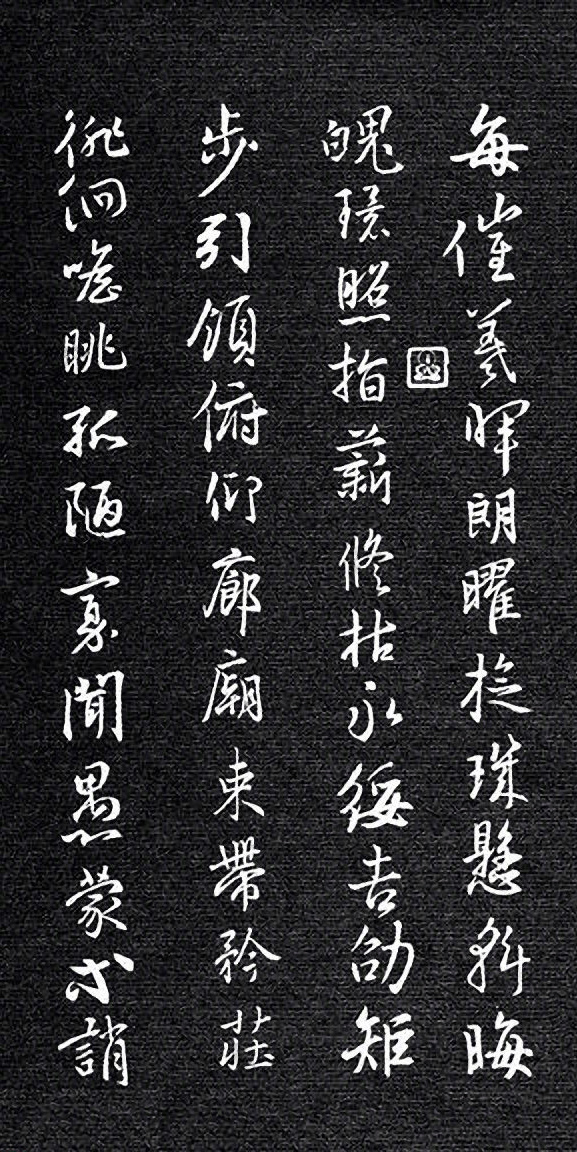 每催羲暉朗曜旋璣懸斡晦
魄環照指薪修祜永綏吉劭矩
步引領俯仰廊廟束帶矜莊
徘徊瞻眺孤陋寡聞愚蒙等誚